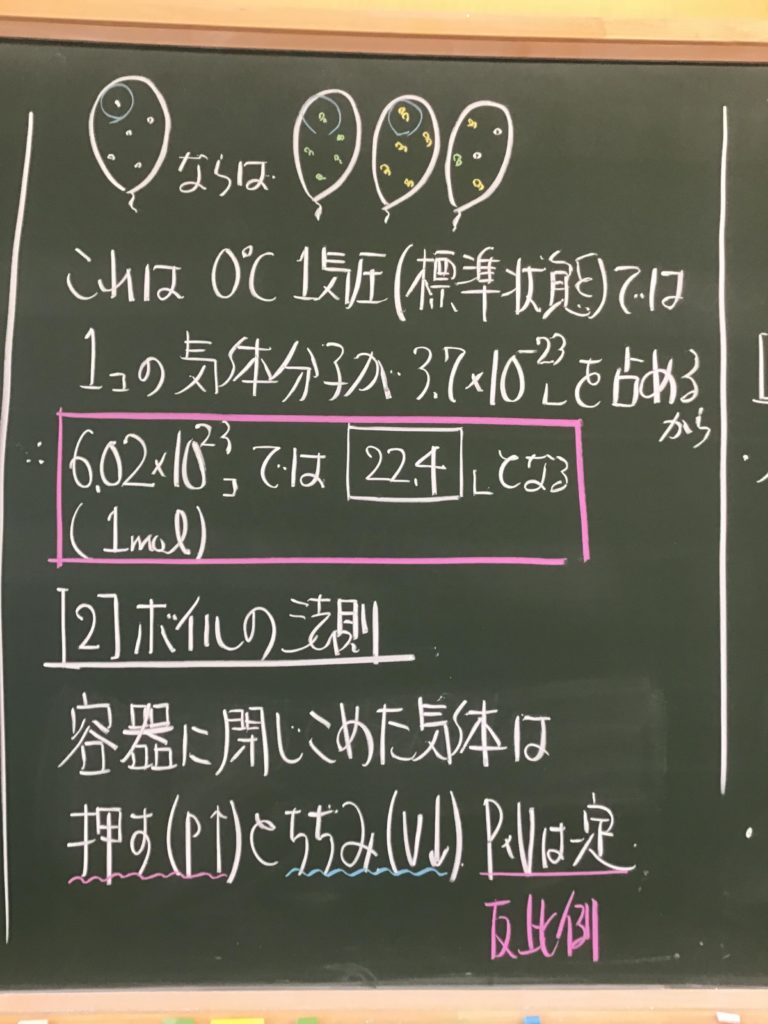 ならは
これは 0℃ 1気圧(標準状態)では
1コの気体分子が 3.7×10⁻²³Lを占める
から
∴ 6.02×10²³コでは 22.4 Lとなる
(1mol)
[2]ボイルの法則
容器に閉じこめた気体は
押す(P↑)とちぢみ(V↓) P×Vは一定
反比例